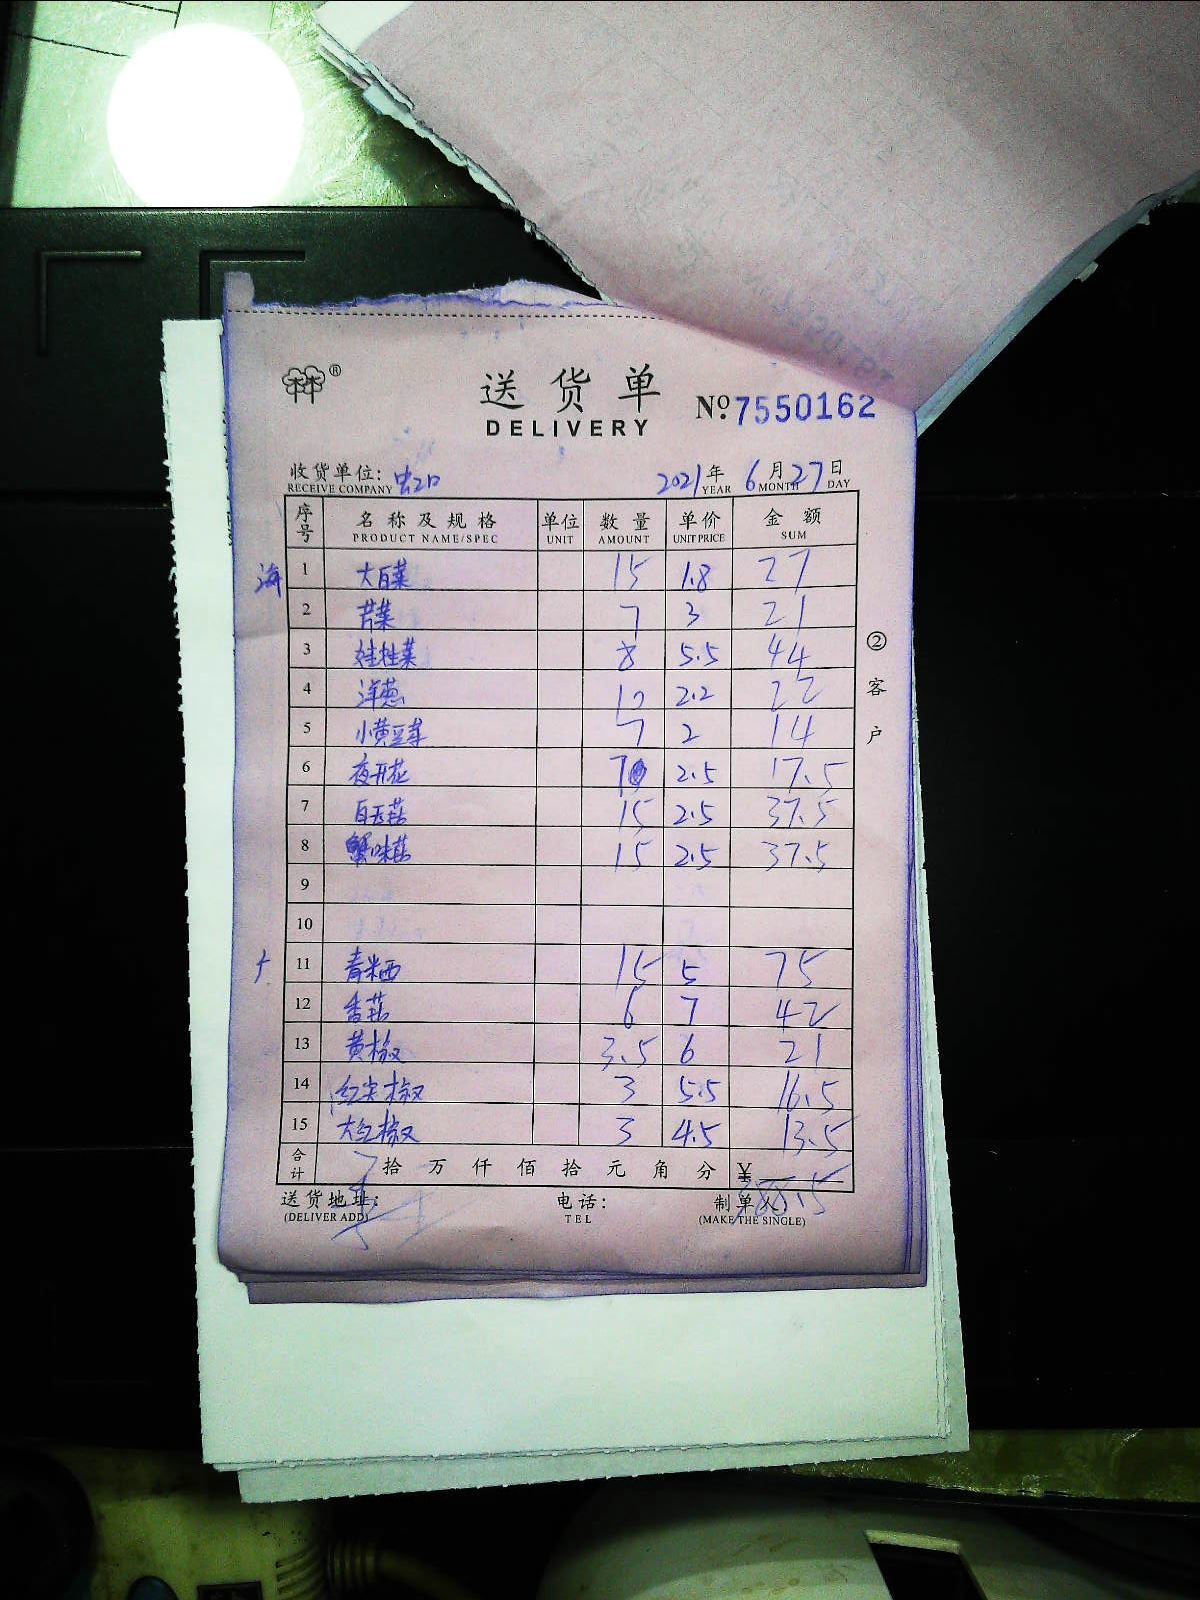 林®
送货单
DELIVERY
№7550162
收货单位: 虹口 2021年6月27日
RECEIVE COMPANY YEAR MONTH DAY
序号 名称及规格 单位 数量 单价 金额
PRODUCT NAME/SPEC UNIT AMOUNT UNIT PRICE SUM
海 1 大白菜 15 1.8 27
2 芹菜 7 3 21
3 娃娃菜 8 5.5 44
4 洋葱 10 2.2 22
5 小黄豆芽 7 2 14
6 夜开花 7 2.5 17.5
7 白玉菇 15 2.5 37.5
8 蟹味菇 15 2.5 37.5
9
10
11 青米西 15 5 75
12 香菇 6 7 42
13 黄椒 3.5 6 21
14 红尖椒 3 5.5 16.5
15 大红椒 3 4.5 13.5
合计 拾万仟佰拾元角分 ¥ 388.5
送货地址: 电话: 制单人:
(DELIVER ADD) TEL (MAKE THE SINGLE)
②客户